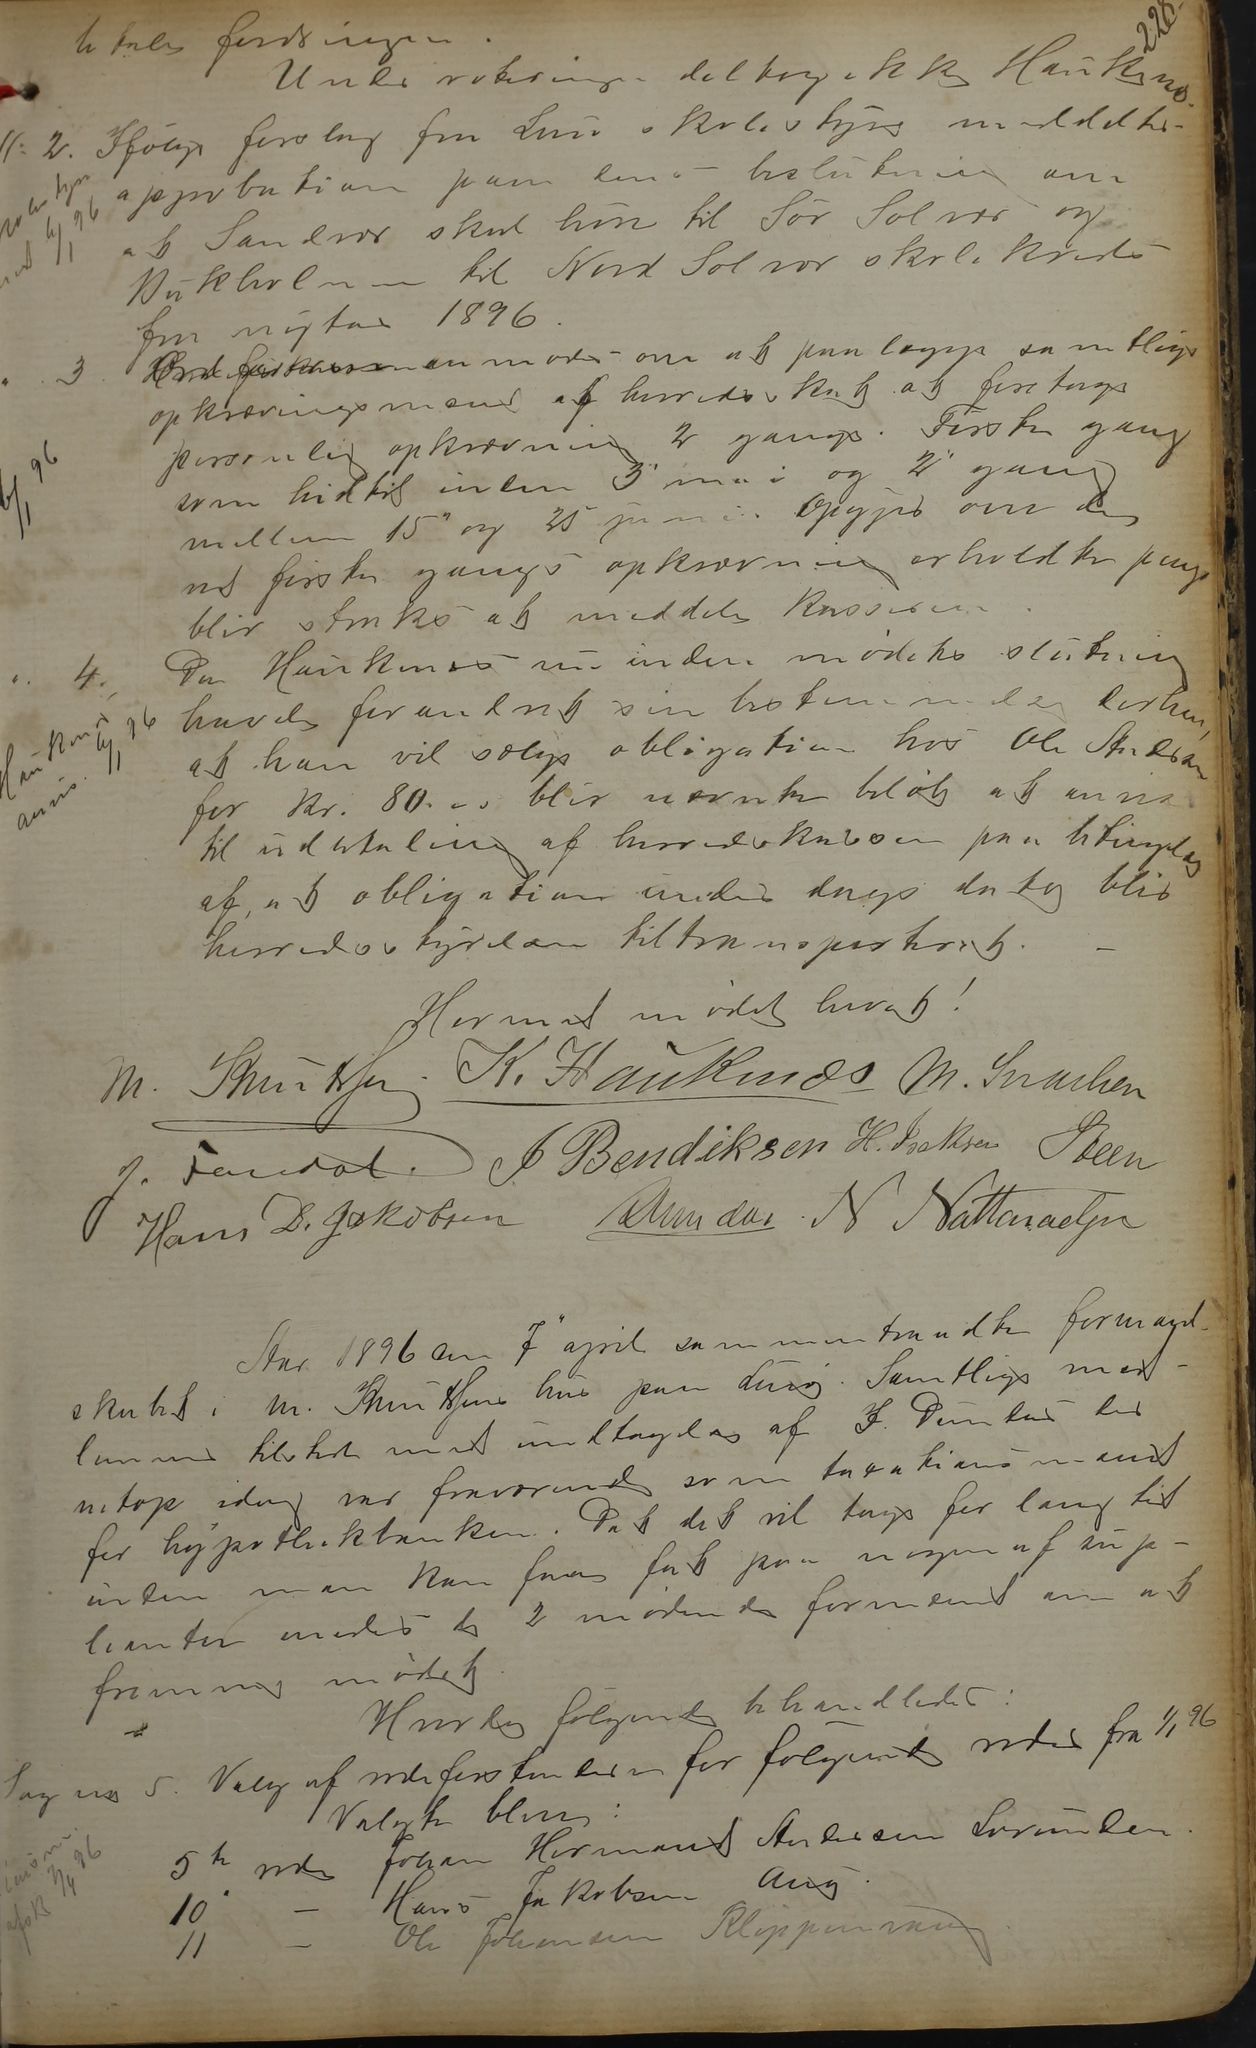 228.
betales fordringen.
Under voteringen deltog ikke Haukenæs.
2. Ifølge forslag fra Lurø skolestyre meddeltes
approbation paa dens beslutning om
at Sandvær skal høre til Sør Solvær og
Bukholmen til Nord Solvær skolekreds
fra nytaar 1896.
3. anmodes om at paalægge samtlige
opkrævningsmænd af herredsskat at foretage
personlig opkrævning 2 gange. Første gang
som hidtil inden 3" mai og 2" gang
mellem 15" og 25 juni. Opgjør over de
ved første gangs opkrævning erholdte penge
blir straks at meddele kassereren.
4. Da Haukenæs nu inden mødets slutning
havde forandret sin bestemmelse derhen,
at han vil sælge obligationen hos Ole Andersen
for kr. 80.00 blir nævnte beløb at anvise
til udbetaling af herredskassen paa betingelse
af, at obligationen under dags dato blir
herredsstyrelsen tiltransporteret. –
Hermed mødet hævet!
M. Knutsen. K. Haukenæs M. Ivarsen
J. Tandal. A Bendiksen H. Isaksen Steen
Hans D. Jakobsen Dundas. N Nattanaelsen
Haukenæs
anvis. 6/1 96
6/1 96
Aar 1896 den 7" april sammentraadte formand-
skabet i M. Knutsens hus paa Lurø. Samtlige med-
lemmer tilstede med undtagelse af I. Dundas der
netop idag var fraværende som taxationsmand
for hypothekbanken. Da det vil tage for lang tid
inden man kan faa fat paa nogen af sup-
leanter enedes de 2 mødende formænd om at
fremme mødet.
Hvorda følgende behandledes:
Sag no 5. Valg af rodeforstandere for følgende roder fra 1/1 96
Valgte blev:
5te rode Johan Hermand Andersen Lovunden.
10" – Hans Jakobsen Aug.
11 – Ole Johansen Kleppenvaag.
afsk 7/4 96